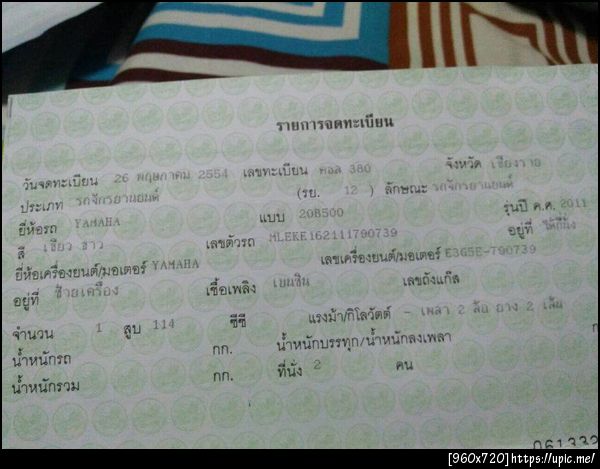 รายการจดทะเบียน
วันจดทะเบียน 26 พฤษภาคม 2554 เลขทะเบียน 380 จังหวัด เชียงราย
ประเภท รถจักรยานยนต์ (รย. 12 ) ลักษณะ รถจักรยานยนต์
ยี่ห้อรถ YAMAHA แบบ 20B500 รุ่นปี ค.ศ. 2011
สี เขียว ขาว เลขตัวรถ MLEKE162111790739 อยู่ที่ ใต้ที่นั่ง
ยี่ห้อเครื่องยนต์/มอเตอร์ YAMAHA เลขเครื่องยนต์/มอเตอร์ E3G5E-790739
อยู่ที่ ซ้ายเครื่อง เชื้อเพลิง เบนซิน เลขถังแก๊ส
จำนวน 1 สูบ 114 ซีซี แรงม้า/กิโลวัตต์ - เพลา 2 ล้อ ยาง 2 เส้น
น้ำหนักรถ กก. น้ำหนักบรรทุก/น้ำหนักลงเพลา
น้ำหนักรวม กก. ที่นั่ง 2 คน
[960x720]https://upic.me/